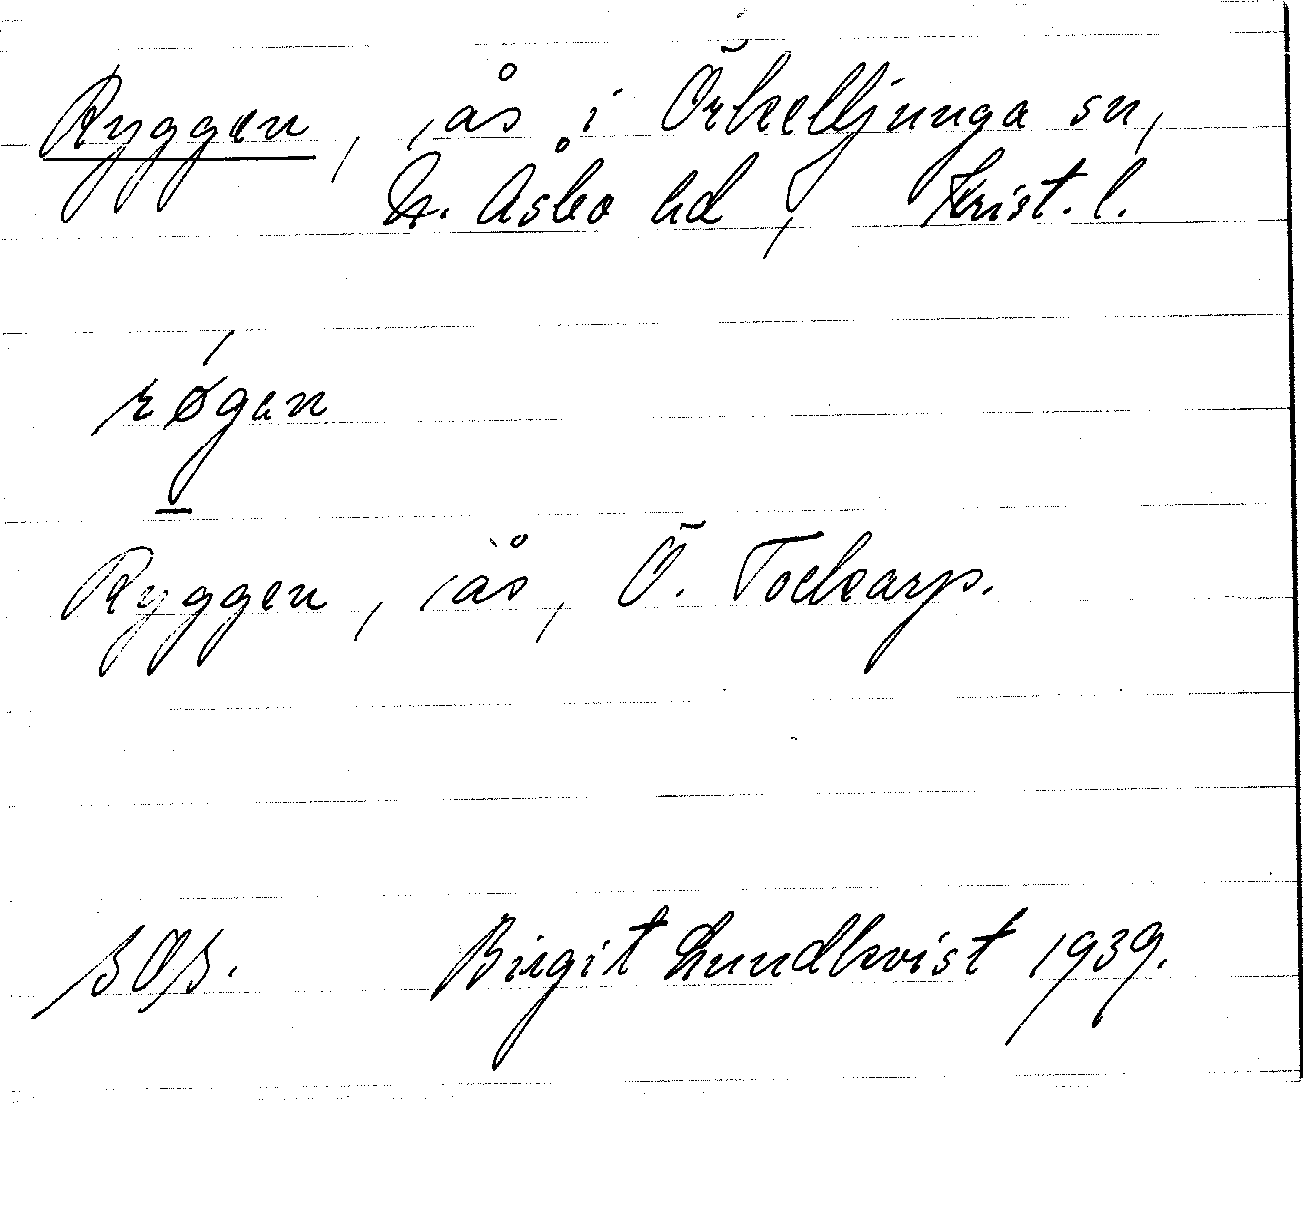 Ryggen, ås i Örkelljunga sn,
N. Åsbo hd, Krist. l.
røgen
Ryggen, ås, Ö. Tockarp.
SOS. Birgit Lundkvist 1939.